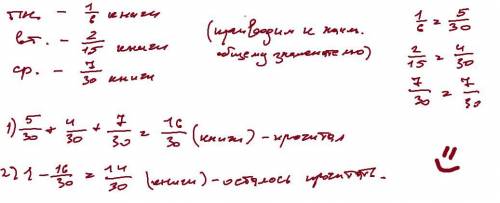 пн. – 1/6 книги
вт. – 2/15 книги
ср. – 7/30 книги
(приводим к наим.
общему знаменателю)
1/6 = 5/30
2/15 = 4/30
7/30 = 7/30
1) 5/30 + 4/30 + 7/30 = 16/30 (книги) – прочитал
2) 1 – 16/30 = 14/30 (книги) – осталось прочитать.